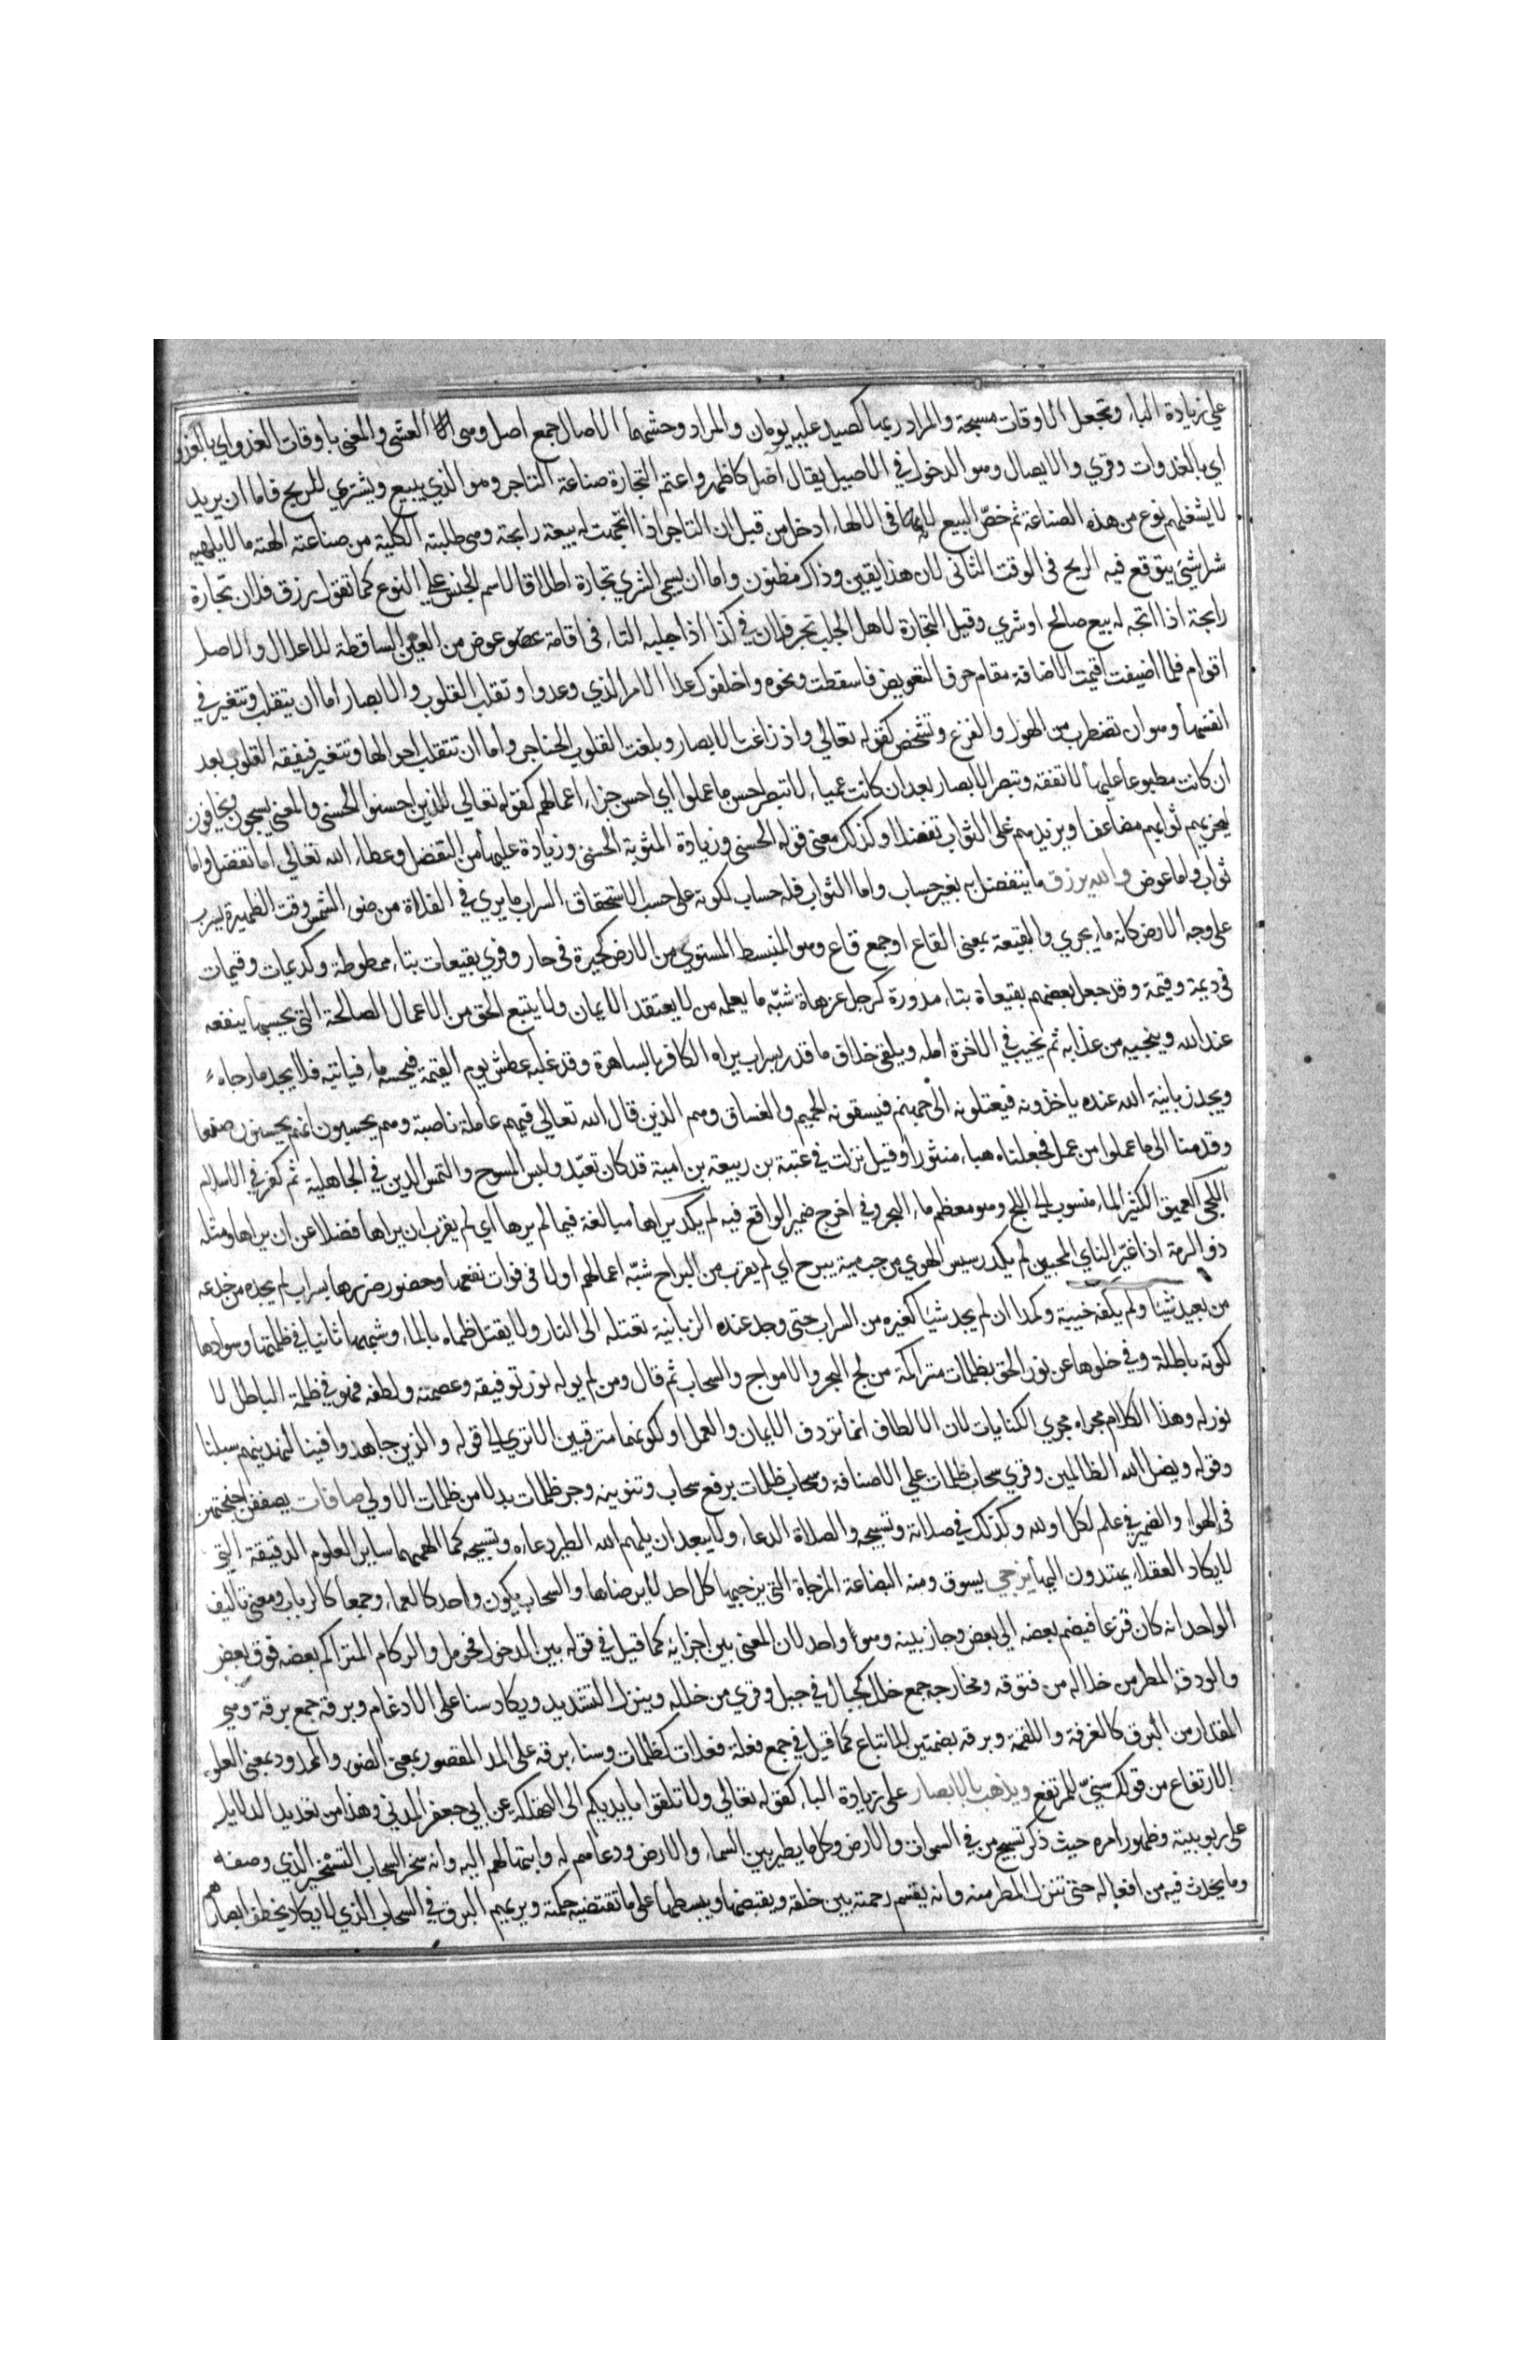 على زيادة الباء وتجعل الاوقات مسبحة والمراد ربها كصيد عليه يومان والمراد وحشهما الاصال جمع اصل وهى العشى والمعنى باوقات الغدو اي بالغدو
اي بالغدوات وقري والايصال وهو الدخول في الاصيل يقال آصل كاظهر واعتم التجارة صناعة التاجر وهو الذي يبيع ويشتري للربح فاما ان يريد
لا يشغلهم نوع من هذه الصناعة ثم خصّ البيع لانه فى الالهاء ادخل من قبل ان التاجر اذا اتجهت له بيعة رابحة وهى طلبته الكلية من صناعته الهته ما لا يلهيه
شراشئ يتوقع فيه الربح فى الوقت الثانى لان هذا يقين وذاك مظنون واما ان يسمى الشري تجارة اطلاقا لاسم الجنس على النوع كما تقول رزق فلان تجارة
رابحة اذا اتجه له بيع صالح او شري وقيل التجارة لاهل الجلب تجر فلان في كذا اذا جلبه التاء فى اقامة عوض من العين الساقطة للاعلال والاصل
اقوام فلما اضيفت اقيمت الاضافة مقام حرف التعويض فاسقطت ونحوه واخلفوك عدا الامر الذي وعدوا وتقلب القلوب والابصار اما ان يتقلب وتتغير في
انفسها وهو ان تضطرب من الهول والفزع وتشخص كقوله تعالي واذ زاغت الابصار وبلغت القلوب الحناجر واما ان تتقلب احوالها وتتغير فيفقه القلوب بعد
ان كانت مطبوعا عليها لا تفقه وتبصر الابصار بعد ان كانت عمياء لا تبصر احسن ما عملوا اي احسن جزاء اعمالهم كقوله تعالي للذين احسنوا الحسنى والمعنى يسبحون ويخافون
ليجزيهم ثوابهم مضاعفا ويزيدهم على الثواب تفضلا وكذلك معنى قوله الحسنى وزيادة المثوبة الحسنى وزيادة عليها من التفضل وعطاء الله تعالي اما تفضل واما
ثواب واما عوض والله يرزق ما يتفضل به بغير حساب واما الثواب فله حساب لكونه على حسب الاستحقاق السراب ما يري في الفلاة من ضوء الشمس وقت الظهيرة يسرب
على وجه الارض كانه ماء يجري والقيعة بمعنى القاع او جمع قاع وهو المنبسط المستوي من الارض كجيرة فى جار وقري بقيعات بتاء ممطوطة وكديمات وقيمات
فى ديمة وقيمة وقد جعل بعضهم بقيعاة بتاء مدورة كرجل عزهاة شبّه ما يعمله من لا يعتقد الايمان ولا يتبع الحق من الاعمال الصالحة التى يحسبها ينفعه
عند الله وينجيه من عذابه ثم يخيب في الاخرة امله ويلقى خلاف ما قدر بسراب يراه الكافر بالساهرة وقد غلبه عطش يوم القيمة فيحسبه ماء فياتيه فلا يجد ما رجاه
ويجد زبانية الله عنده ياخذونه فيعتلونه الى جهنم فيسقونه الحميم والغساق وهم الذين قال الله تعالي فيهم عاملة ناصبة وهم يحسبون انهم يحسنون صنعا
وقدمنا الى ما عملوا من عمل فجعلناه هباء منثورا وقيل نزلت في عتبة بن ربيعة بن امية قد كان تعبّد ولبس المسوح والتمس الدين في الجاهلية ثم كفر في الاسلام
اللجى العميق الكثير الماء منسوب الى اللج وهو معظم ماء البحر وفي اخرج ضمير الواقع فيه لم يكد يراها مبالغة فيما لم يرها اي لم يقرب ان يراها فضلا عن ان يراها ومثله
ذو الرمة اذا غيّر الناي المحبين لم يكد رسيس الهوي من حب مية يبرح اي لم يقرب من البراح شبّه اعمالهم اولا فى فوات نفعها وحضور ضررها بسراب لم يجده من خدعه
من بعيد شيئا ولم يكفه خيبة وكمدا ان لم يجد شيئا كغيره من السراب حتى وجد عنده الزبانية تعتله الى النار ولا يقتل ظماه بالماء وشبهها ثانيا في ظلمتها وسوادها
لكونه باطلة وفي خلوها عن نور الحق بظلمات متراكمة من لج البحر والامواج والسحاب ثم قال ومن لم يوله نور توفيقه وعصمته ولطفه فهو في ظلمة الباطل لا
نور له وهذا الكلام مجراه مجري الكنايات لان الالطاف انما تردف الايمان والعمل او لكونهما مترقبين الا تري الى قوله والذين جاهدوا فينا لنهدينهم سبلنا
وقوله ويضل الله الظالمين وقري سحاب ظلمات علي الاضافة وسحاب ظلمات برفع سحاب وتنوينه وجر ظلمات بدلا من ظلمات الاولي صافات يصففن اجنحتهن
فى الهواء والضمير في علم لكل او لله وكذلك في صلاته وتسبيحه والصلاة الدعاء ولا يبعد ان يلهم الله الطير دعاءه وتسبيحه كما الهمهما ساير العلوم الدقيقة التي
لا يكاد العقلاء يهتدون اليها يزجي يسوق ومنه البضاعة المزجاة التى يزجيها كل احد لا يرضاها والسحاب يكون واحد كالعماء وجمعا كالرباب ومعنى تاليف
الواحد انه كان قزعا فيضم بعضه الى بعض وجاز بينه وهو واحد لان المعنى بين اجزايه كما قيل في قوله بين الدخول فحومل والركام المتراكم بعضه فوق بعض
والودق المطر من خلاله من فتوقه ومخارجه جمع خلل كجبال في جبل وقري من خلله وينزل بالتشديد ويكاد سنا على الادغام وبرقه جمع برقة وهي
المقدار من البرق كالغرفة واللقمة وبرقه بضمتين للاتباع كما قيل في جمع فعلة فعلات كظلمات وسناء برقه على المد المقصور بمعنى الضوء والممدود بمعنى العلو
والارتفاع من قولك سنيّ للمرتفع ويذهب بالابصار على زيادة الباء كقوله تعالي ولا تلقوا بايديكم الى التهلكة عن ابي جعفر المدني وهذا من تعديد الدلايل
على ربوبيته وظهور امره حيث ذكر تسبيح من في السموات والارض وكل ما يطير بين السماء والارض ودعاهم له وابتهالهم اليه وانه سخر السحاب التسخير الذي وصفه
وما يحدث فيه من افعاله حتى تنزل المطر منه وانه يقسم رحمته بين خلقه ويقبضها ويبسطها على ما تقتضيه حكمته ويريهم البرق في السحاب الذي لا يكاد يخطف ابصارهم